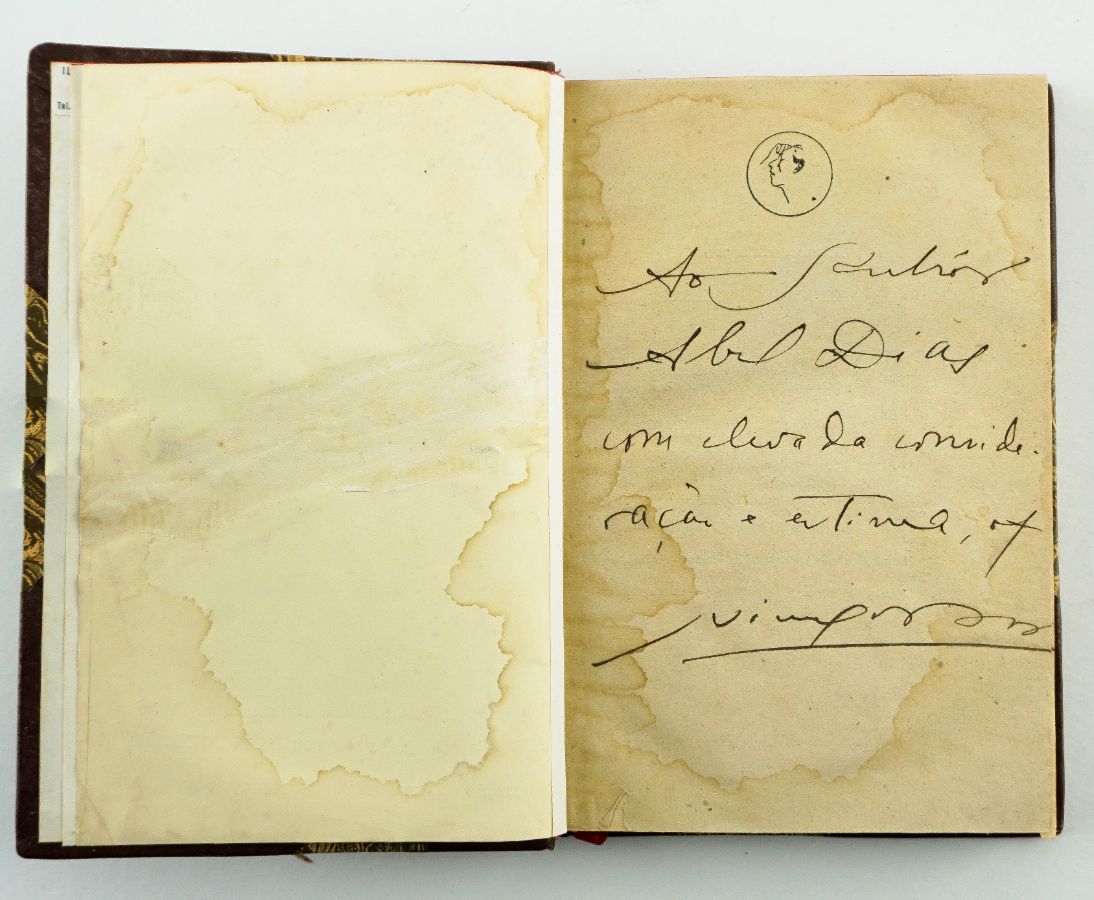 11
Tel.
Ao Senhor
Abel Dias
com elevada conside-
ração e estima, of